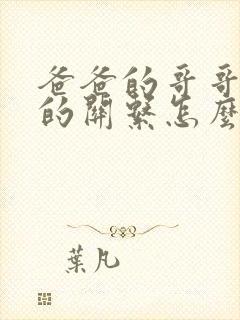 爸爸的哥哥
的關繫怎麼
葉凡